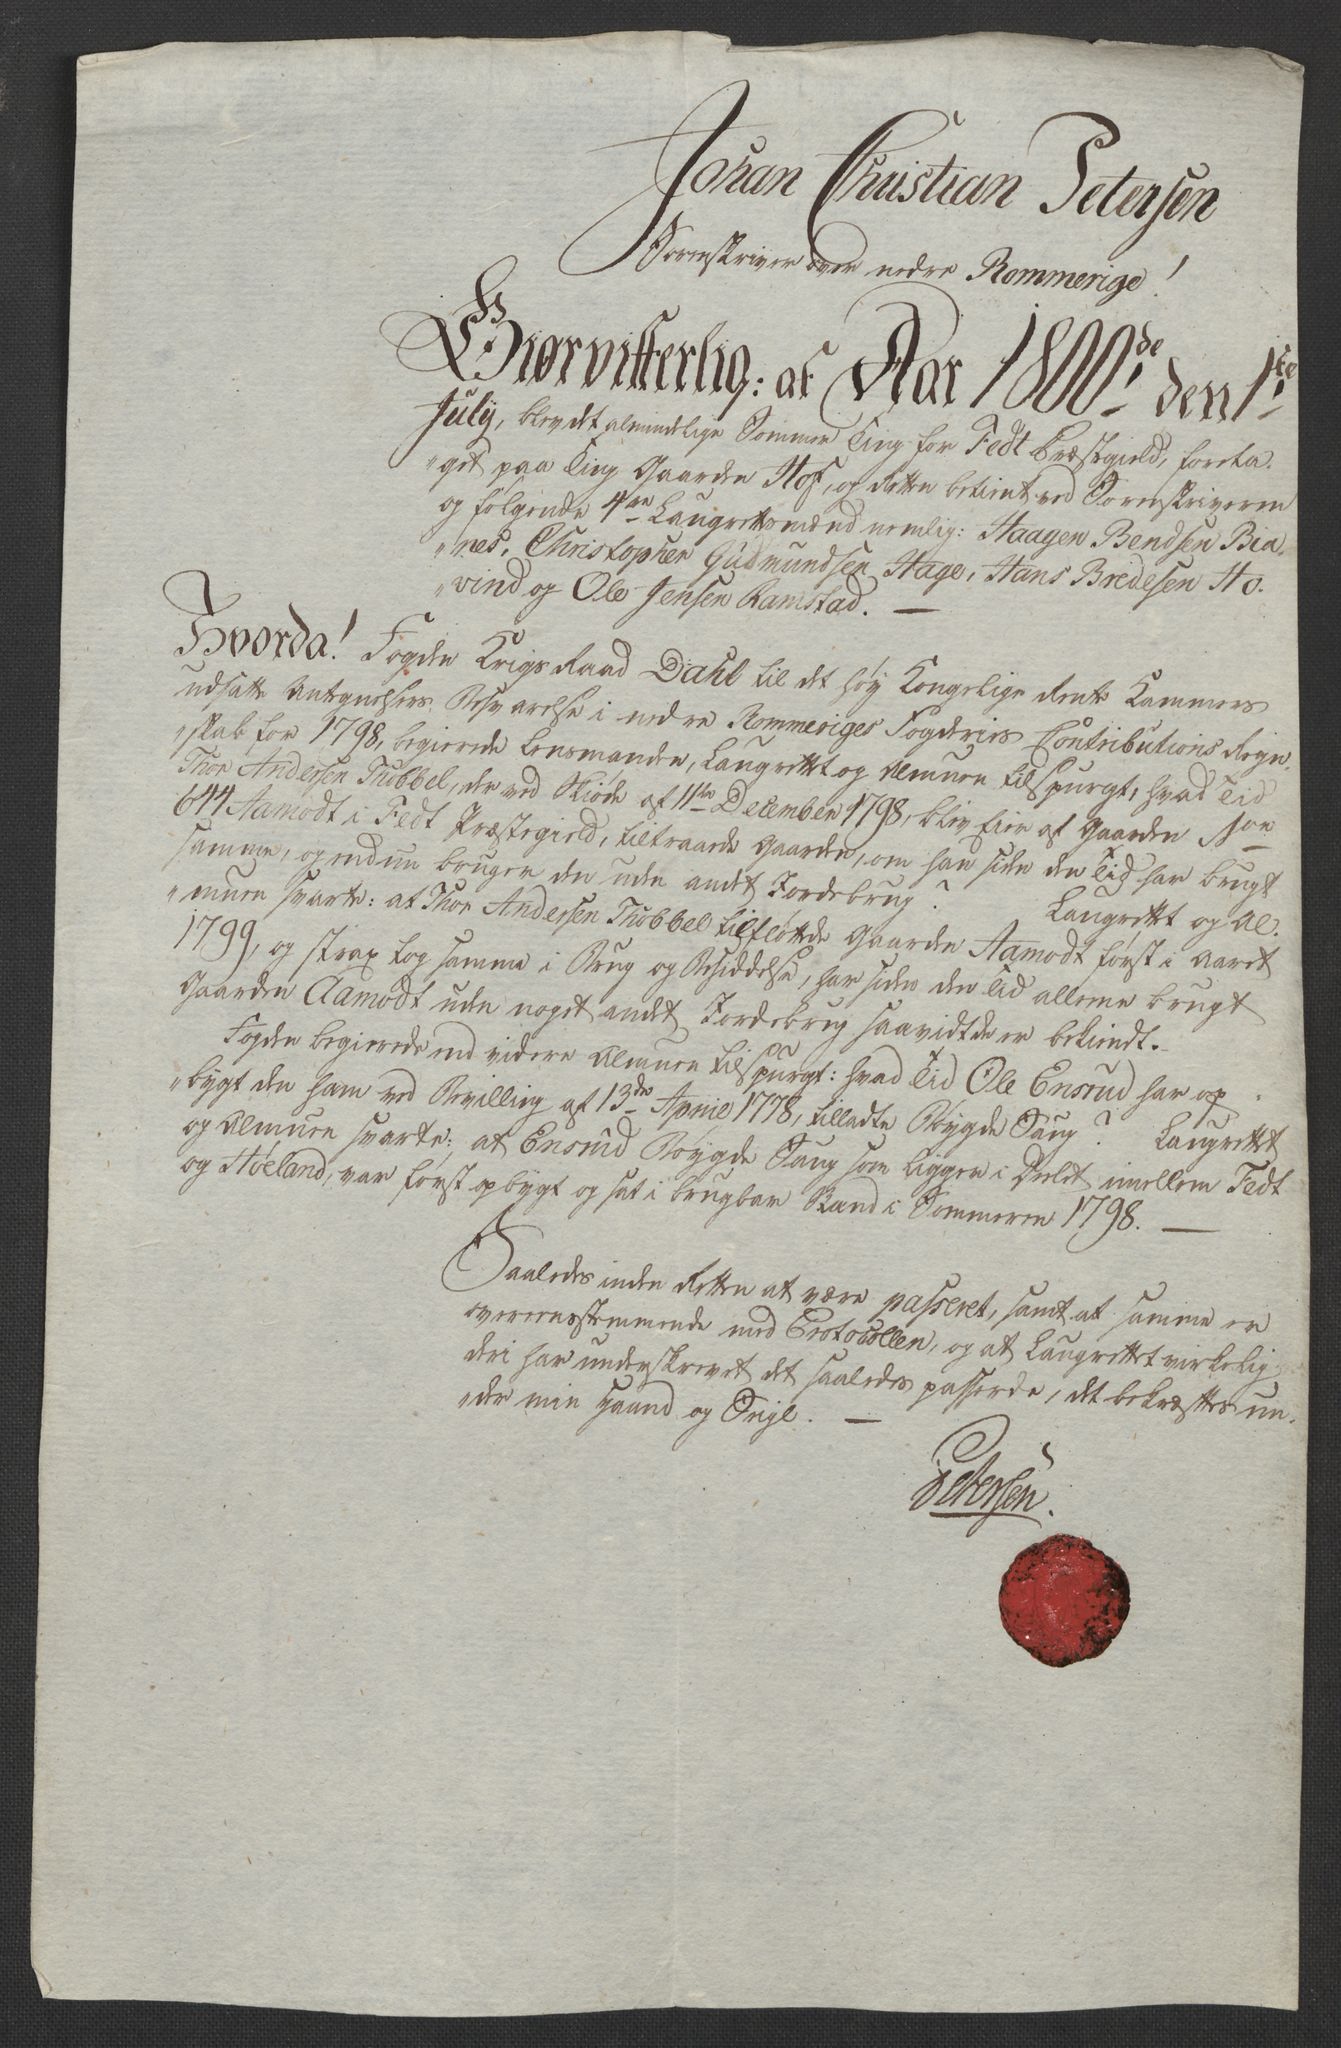 Johan Christian Petersen
Sorenskriver over nedre Rommerige!
Giør vitterlig: at Aar 1800de den 1ste
July, blev det almindelige Sommer Ting for Fedt Præstegield, foreta-
"get paa Ting Gaarden Hof, og Retten betient ved Sorenskriveren
og følgende 4re Laugrettesmænd nemlig: Haagen Bendsen Bia-
"nes, Christopher Gudmundsen Hage, Hans Bredesen Ho-
"vind og Ole Jensen Ramstad. —
Hvorda! Fogden Krigs Raad Dahl til det høy Kongelige Rente Kammers
udsatte Antegnelsers Besvarelse i nedre Rommeriges Fogderies Contributions Regn-
"skab for 1798, begierede Lensmanden, Laugrettet og Almuen tilspurgt, hvad Tid
Thor Andersen Thobbel, der ved Skiøde af 11te December 1798, blev Eier af Gaarden No
644 Aamodt i Fedt Præstegield, tiltraade Gaarden, om han siden den Tid har brugt
samme, og endnu bruger den uden andet Jordebrug? Laugrettet og Al-
"muen svarte: at Thor Andersen Thobbel tilfløttede Gaarden Aamodt først i Aaret
1799, og strax tog samme i Brug og Besiddelse, har siden den Tid alleene brugt
Gaarden Aamodt uden noget andet Jordebrug saavidt de er bekiendt.
Fogden begierede end videre Almuen tilspurgt: hvad Tid Ole Ensrud har op-
"bygt den ham ved Bevilling af 13de April 1778, tilladte Bøygde Saug? Laugrettet
og Almuen svarte: at Ensrud Bøygde Saug som ligger i Deelet imellem Fedt
og Høeland, var først opbygt og sat i brugbar Stand i Sommeren 1798. —
Saaledes inden Retten at være passeret, samt at samme er
overeensstemmende med Protocollen, og at Laugrettet virkelig
deri har underskrevet det saaledes passerede, det bekræftes un-
"der min Haand og Seigl. —
Petersen.